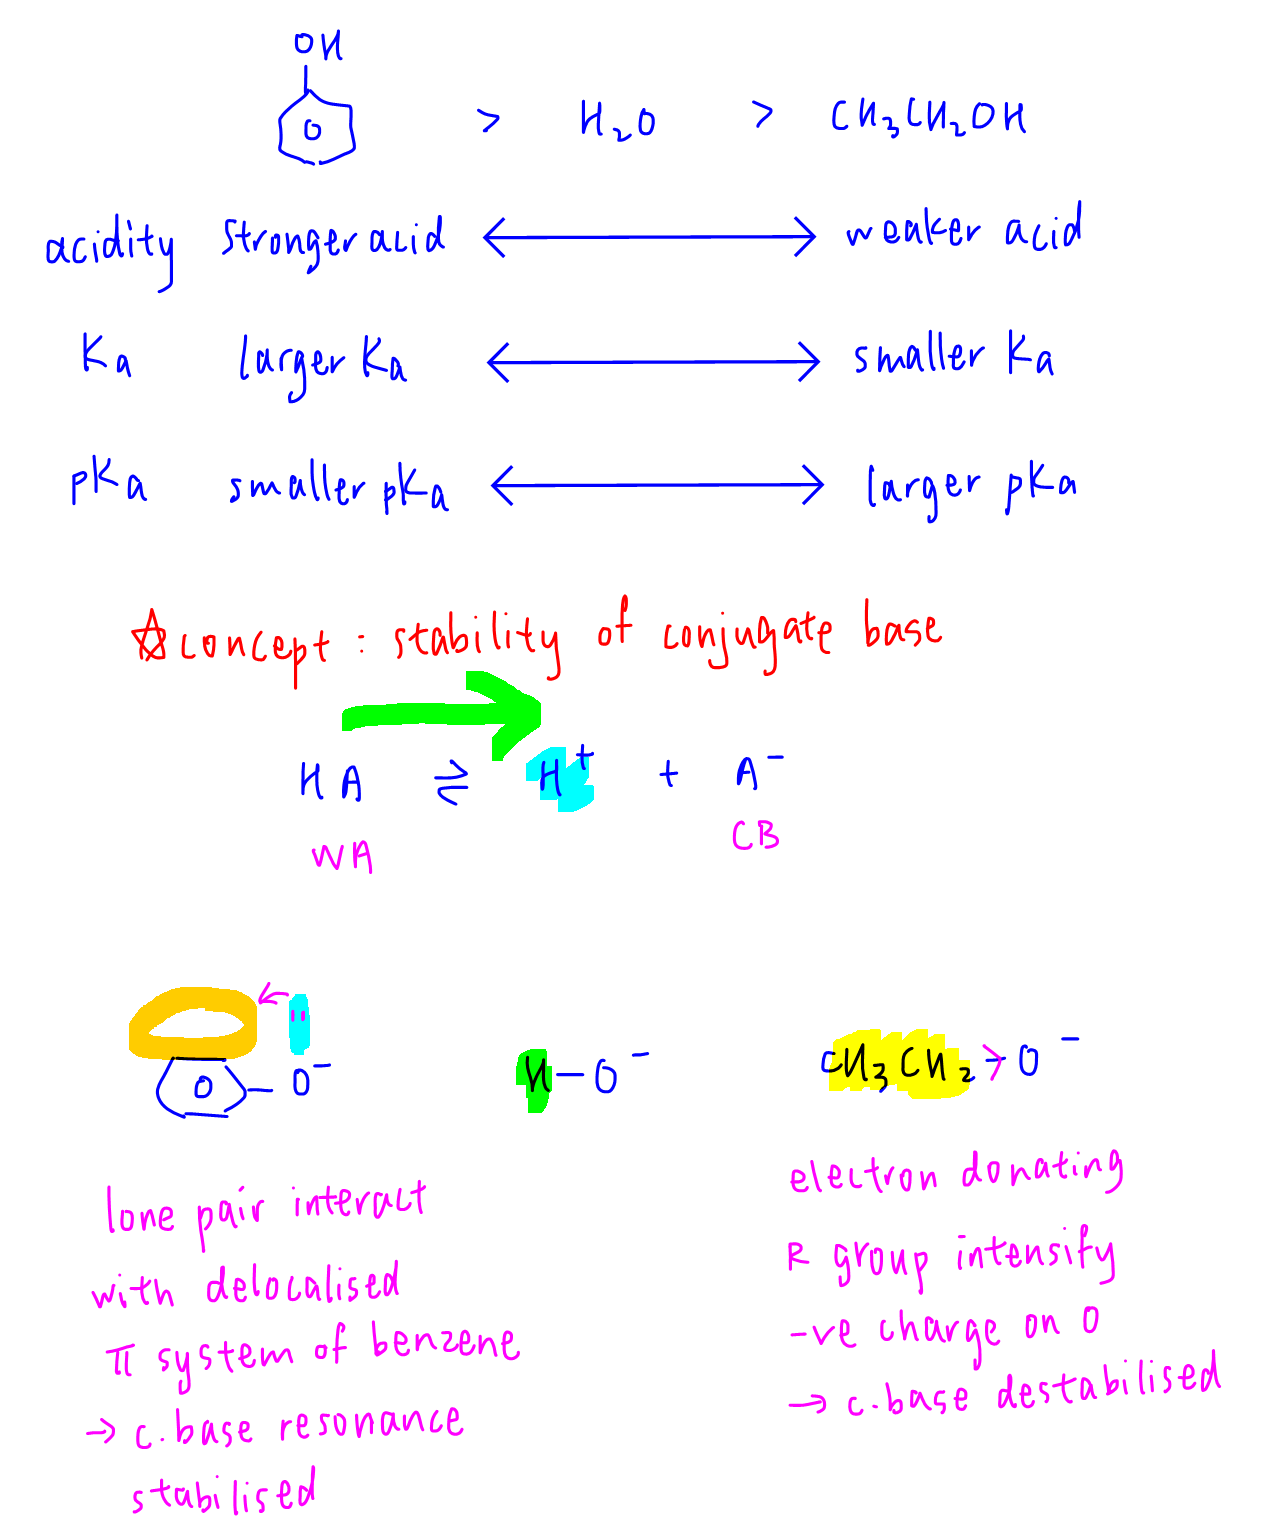 OH
> H₂O > CH₃CH₂OH
acidity stronger acid ⟷ weaker acid
Ka larger Ka ⟷ smaller Ka
pKa smaller pKa ⟷ larger pKa
☆ concept : stability of conjugate base
HA ⇌ H⁺ + A⁻
WA CB
O⁻ H–O⁻ CH₃CH₂→O⁻
lone pair interact
with delocalised
π system of benzene
→ c.base resonance
stabilised
electron donating
R group intensify
-ve charge on O
→ c.base destabilised